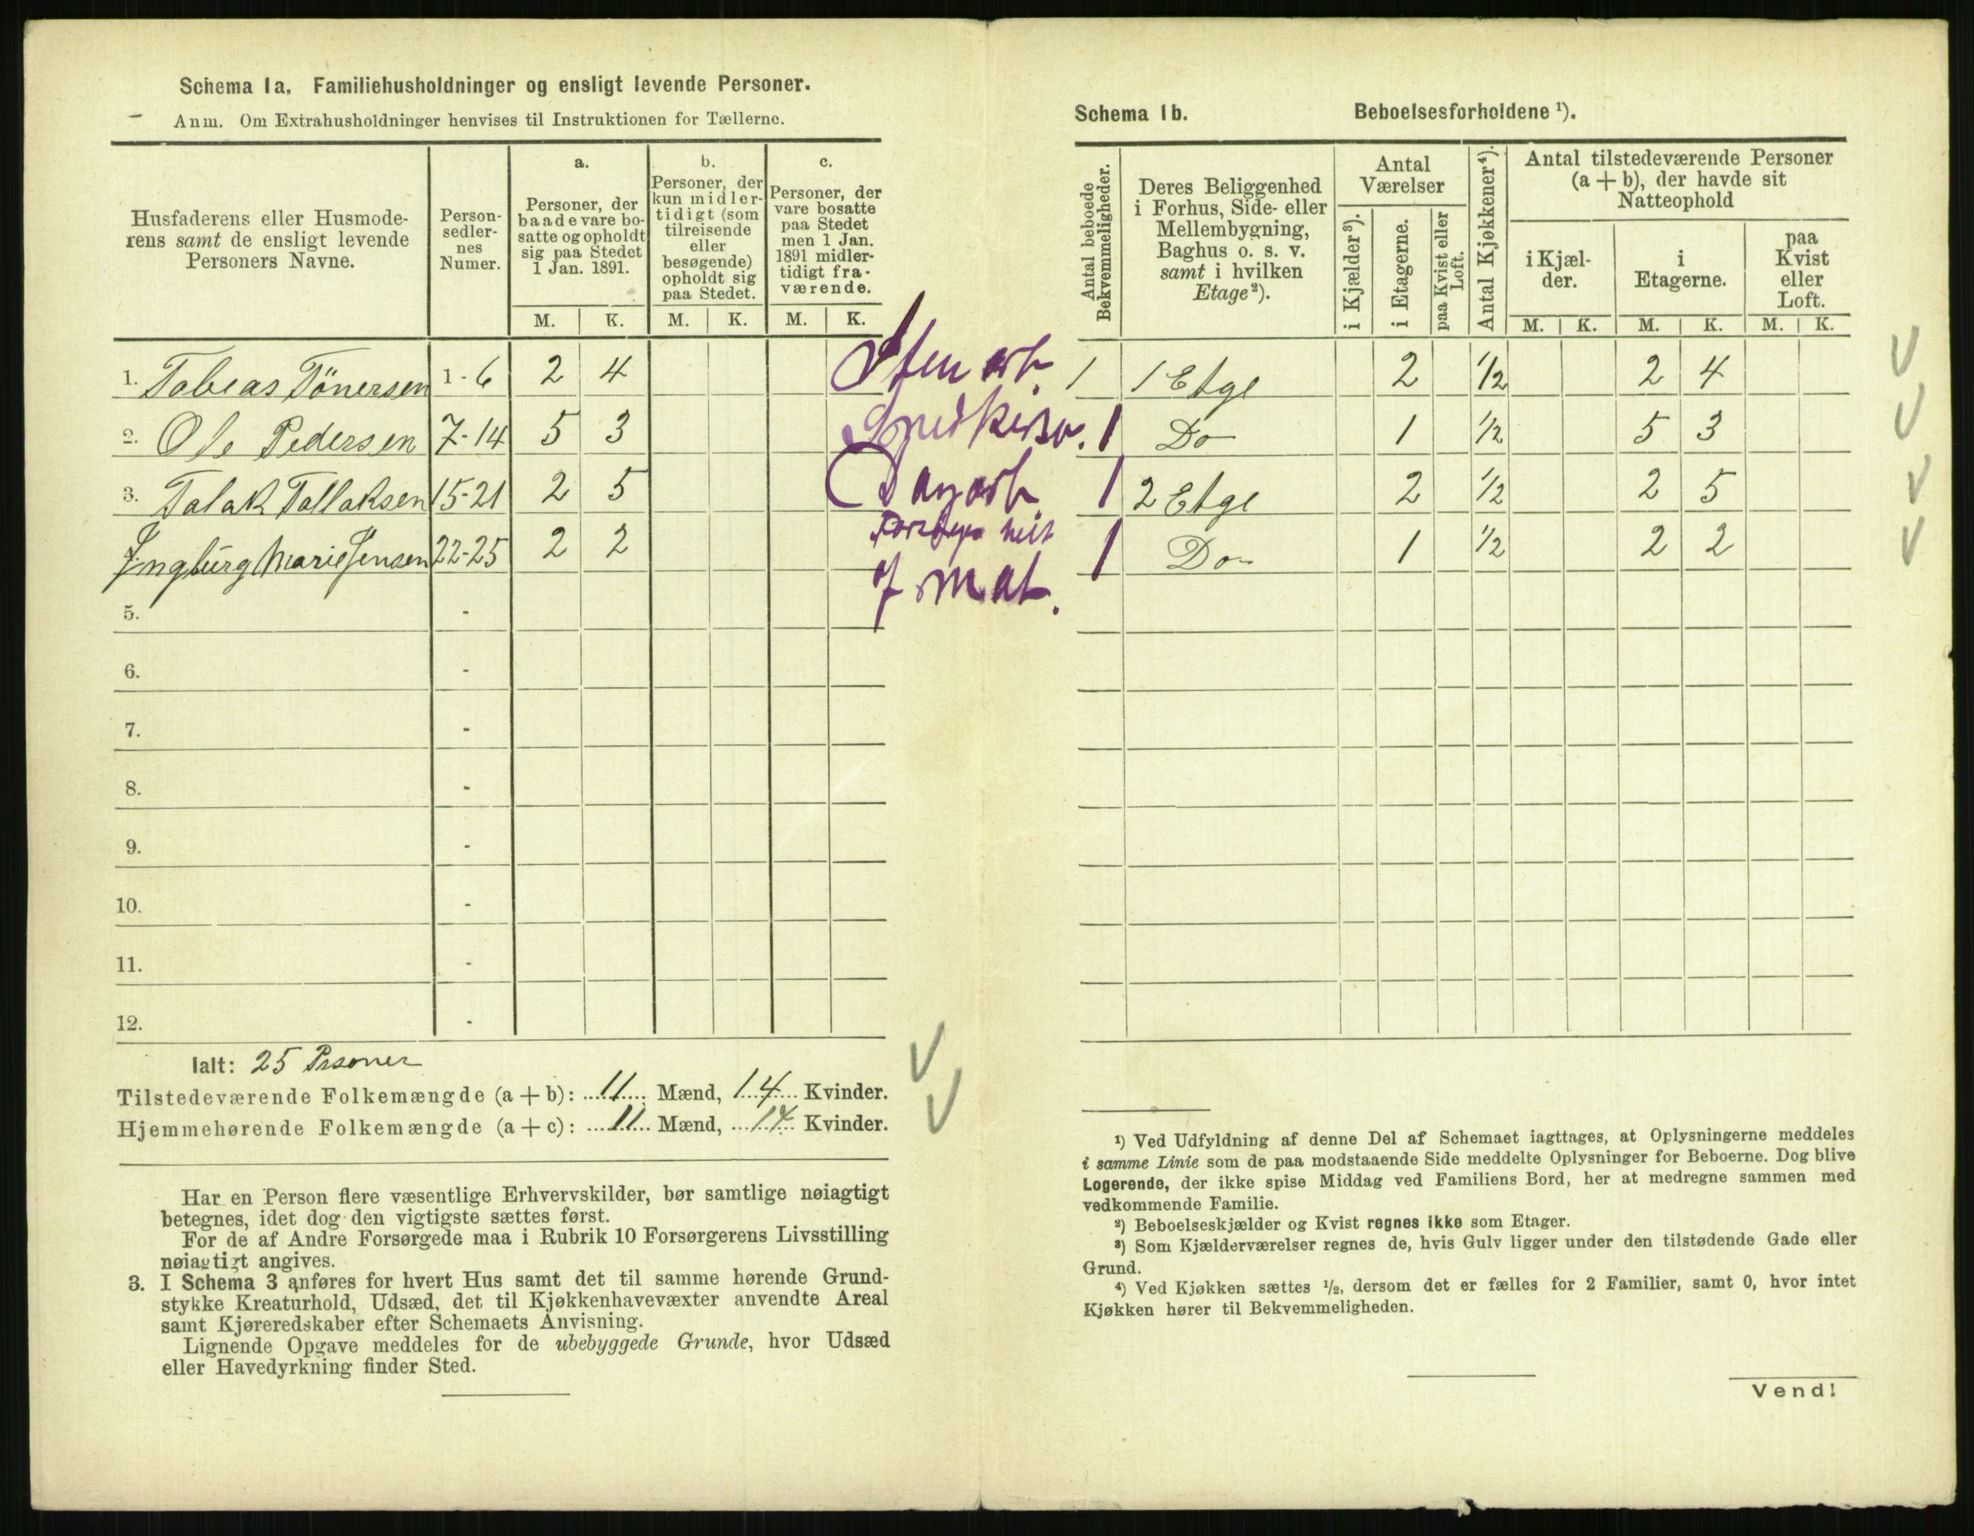 Schema 1a. Familiehusholdninger og ensligt levende Personer.
Anm. Om Extrahusholdninger henvises til Instruktionen for Tællerne.
Husfaderens eller Husmoderens samt de ensligt levende Personers Navne.
Personsedlernes Numer.
a. Personer, der baade vare bosatte og opholdt sig paa Stedet 1 Jan. 1891.
b. Personer, der kun midlertidigt (som tilreisende eller besøgende) opholdt sig paa Stedet.
c. Personer, der vare bosatte paa Stedet men 1 Jan. 1891 midlertidigt fraværende.
M. K. M. K. M. K.
1. Tobias Tönersen 1-6 2 4 Stenarb.
2. Ole Pedersen 7-14 5 3
3. Talak Tallaksen 15-21 2 5 Dagarb
Ingburg Marie Jensen 22-25 2 2 helt
af Mat.
5. -
6. -
7. -
8. -
9. -
10. -
11. -
12. -
Ialt: 25 Prsoner
Tilstedeværende Folkemængde (a + b): 11 Mænd, 14 Kvinder.
Hjemmehørende Folkemængde (a + c): 11 Mænd, 14 Kvinder.
Har en Person flere væsentlige Erhvervskilder, bør samtlige nøiagtigt
betegnes, idet dog den vigtigste sættes først.
For de af Andre Forsørgede maa i Rubrik 10 Forsørgerens Livsstilling
nøiagtigt angives.
3. I Schema 3 anføres for hvert Hus samt det til samme hørende Grund-
stykke Kreaturhold, Udsæd, det til Kjøkkenhavevæxter anvendte Areal
samt Kjøreredskaber efter Schemaets Anvisning.
Lignende Opgave meddeles for de ubebyggede Grunde, hvor Udsæd
eller Havedyrkning finder Sted.
Schema 1b. Beboelsesforholdene ¹).
Antal beboede Bekvemmeligheder.
Deres Beliggenhed i Forhus, Side- eller Mellembygning, Baghus o. s. v. samt i hvilken Etage²).
Antal Værelser
i Kjælder³).
i Etagerne.
paa Kvist eller Loft.
Antal Kjøkkener⁴).
Antal tilstedeværende Personer (a + b), der havde sit Natteophold
i Kjælder.
i Etagerne.
paa Kvist eller Loft.
M. K. M. K. M. K.
1 1 Etge 2 ½ 2 4
1 Do 1 ½ 5 3
1 2 Etge 2 ½ 2 5
1 Do 1 ½ 2 2
¹) Ved Udfyldning af denne Del af Schemaet iagttages, at Oplysningerne meddeles
i samme Linie som de paa modstaaende Side meddelte Oplysninger for Beboerne. Dog blive
Logerende, der ikke spise Middag ved Familiens Bord, her at medregne sammen med
vedkommende Familie.
²) Beboelseskjælder og Kvist regnes ikke som Etager.
³) Som Kjælderværelser regnes de, hvis Gulv ligger under den tilstødende Gade eller
Grund.
⁴) Ved Kjøkken sættes ½, dersom det er fælles for 2 Familier, samt 0, hvor intet
Kjøkken hører til Bekvemmeligheden.
Vend!